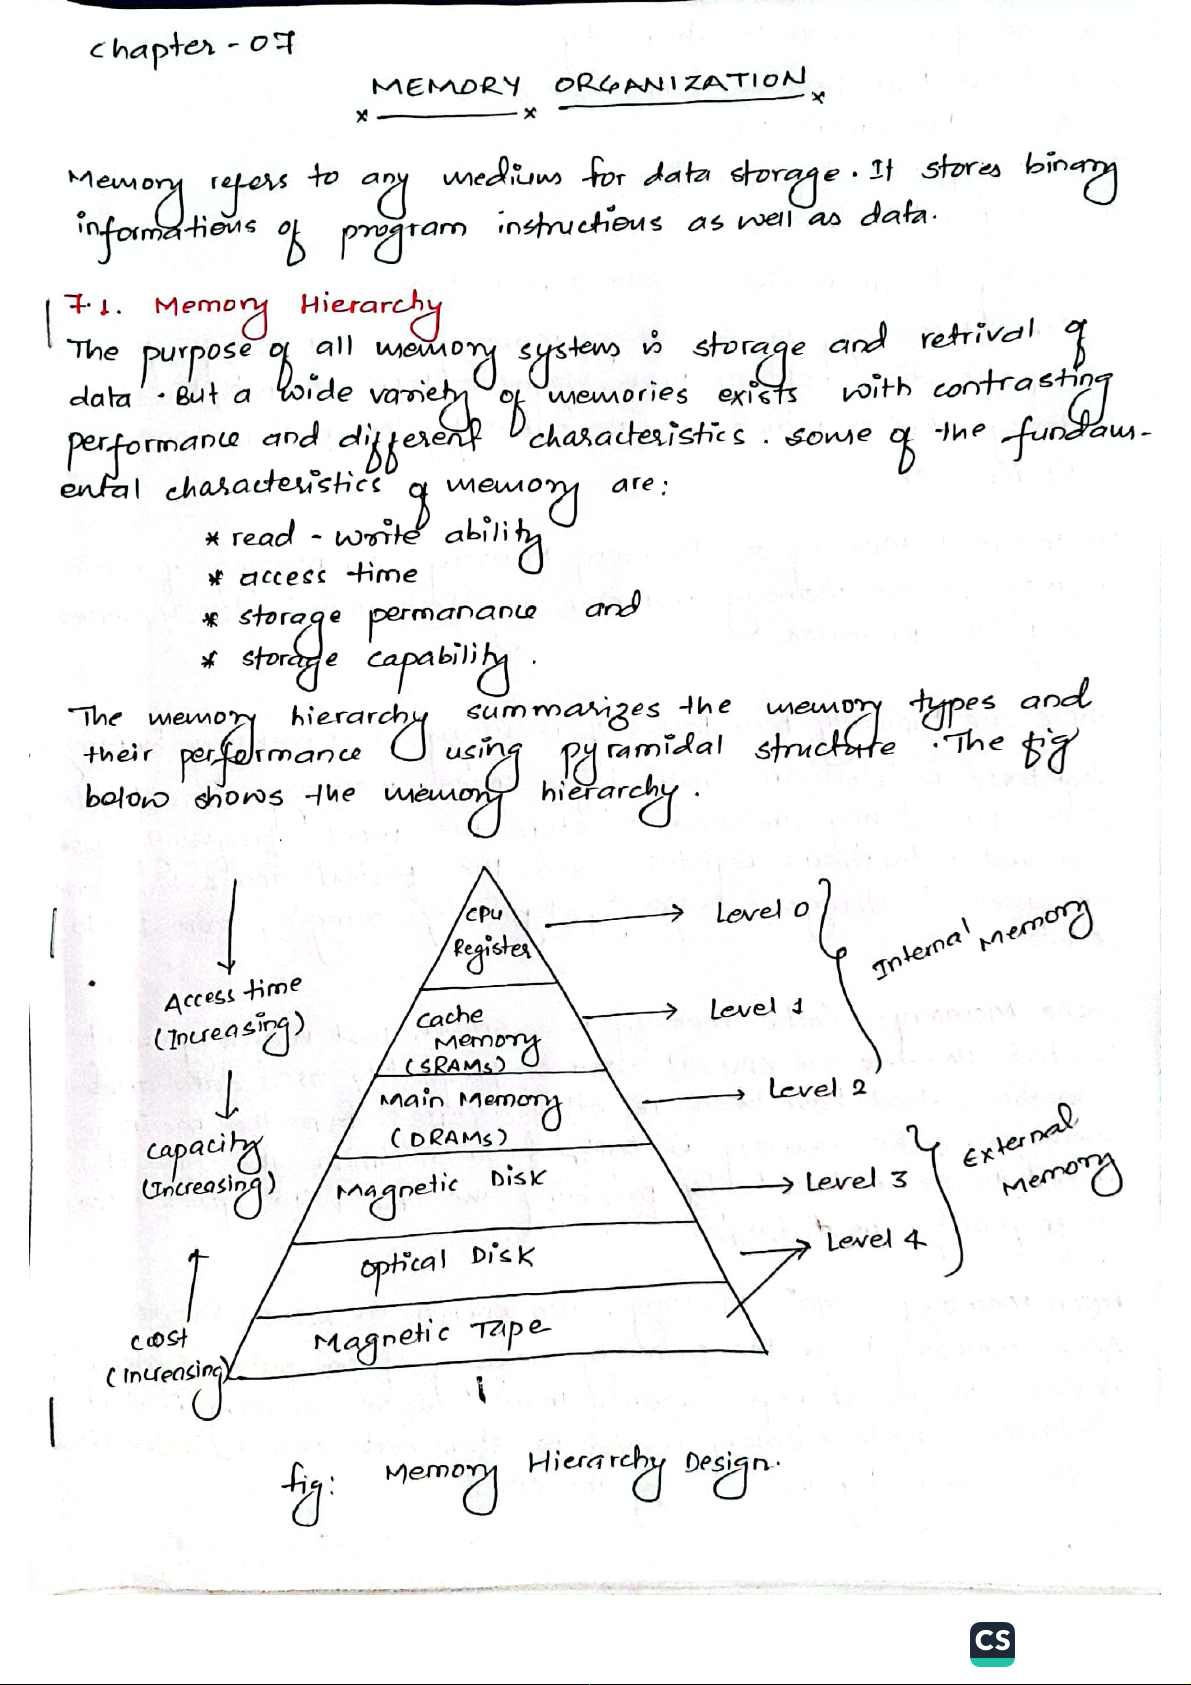 chapter - 07
MEMORY ORGANIZATION
Memory refers to any medium for data storage. It stores binary
informations of program instructions as well as data.
7.1. Memory Hierarchy
The purpose of all memory systems is storage and retrival of
data. But a wide variety of memories exists with contrasting
performance and different characteristics. some of the fundam-
ental characteristics of memory are:
* read - write ability
* access time
* storage permanance and
* storage capability.
The memory hierarchy summarizes the memory types and
their performance using pyramidal structure. The fig
below shows the memory hierarchy.
CPU
Register
Level 0
Internal Memory
Access time
(Increasing)
Cache
Memory
(SRAMs)
Level 1
Main Memory
(DRAMs)
Level 2
Capacity
(Increasing)
Magnetic Disk
Level 3
External
Memory
Optical Disk
Level 4
Magnetic Tape
Coost
(Increasing)
fig: Memory Hierarchy Design.
CS